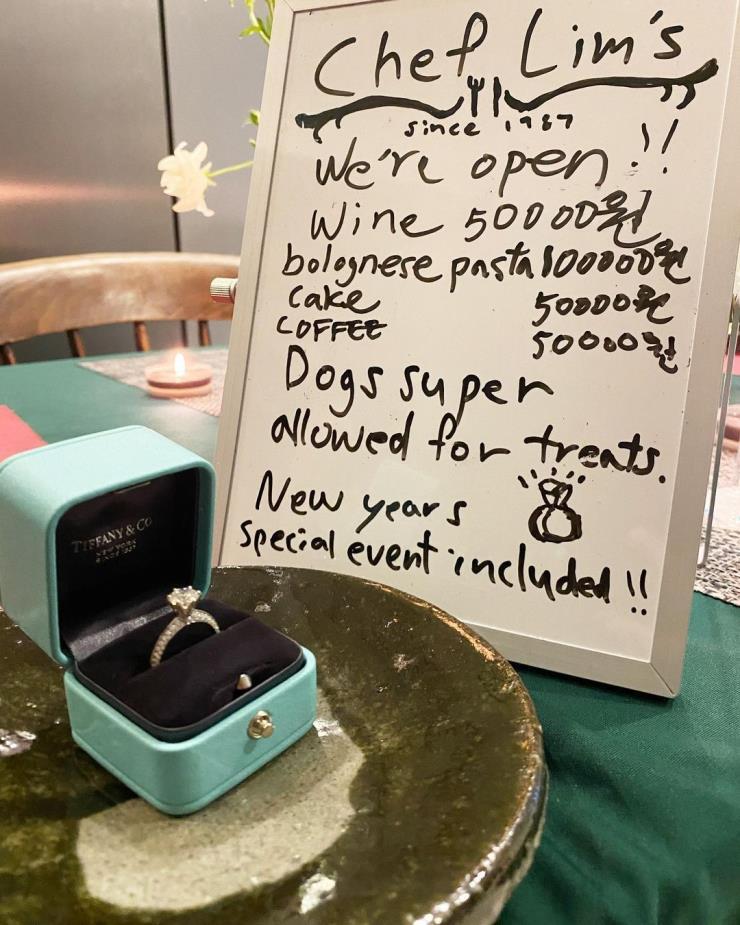 Chef Lim's
since 1987
We're open!!
Wine 50000원
bolognese pasta 100000원
Cake 50000원
COFFEE 50000원
Dogs super
allowed for treats.
New years
special event included!!
TIFFANY & CO
NEW YORK
SINCE 1837